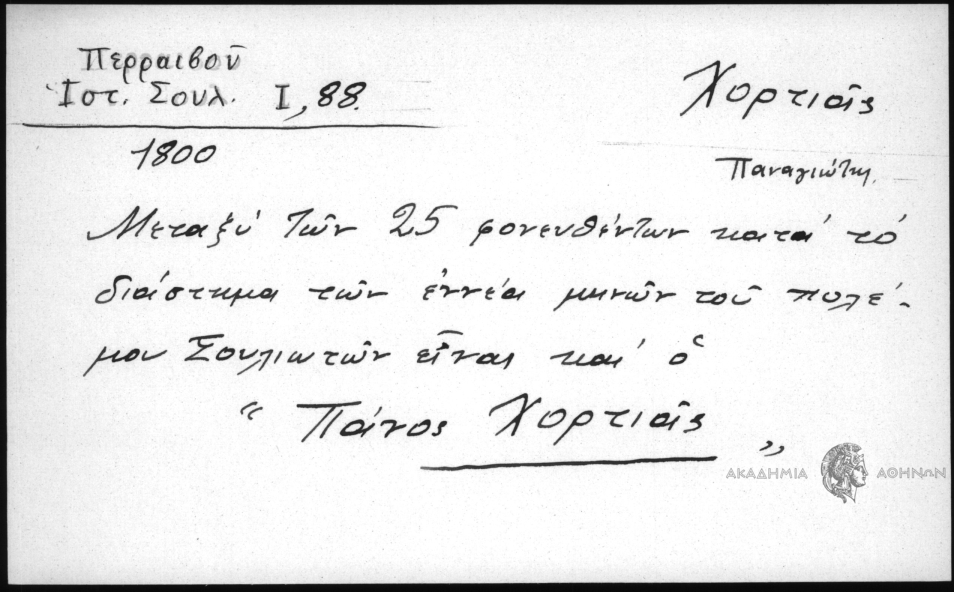 Περραιβοῦ
Ἱστ. Σουλ. I, 88.
1800
Χορτιᾶς
Παναγιώτη.
Μεταξύ τῶν 25 φονευθέντων κατά τό
διάστημα τῶν ἐννέα μηνῶν τοῦ πολέ-
μου Σουλιωτῶν εἶναι καί ὁ
“ Πάνος Χορτιᾶς „
ΑΚΑΔΗΜΙΑ ΑΘΗΝΩΝ